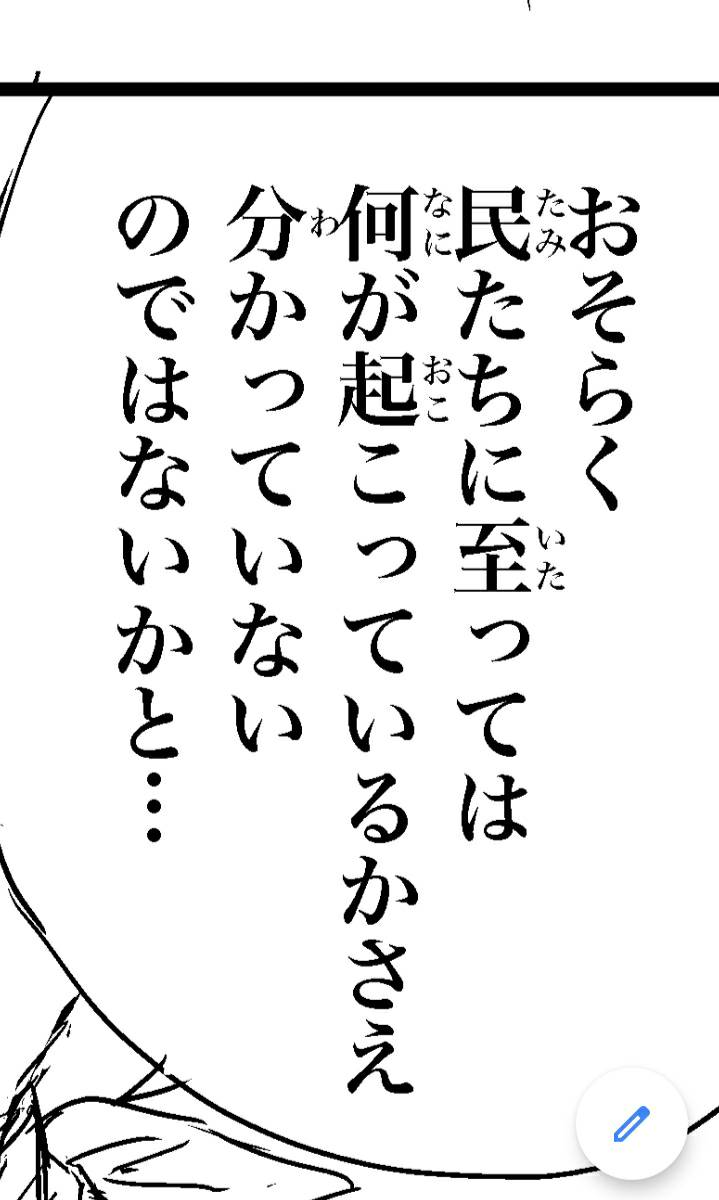 おそらく
民たちに至っては
何が起こっているかさえ
分かっていない
のではないかと…